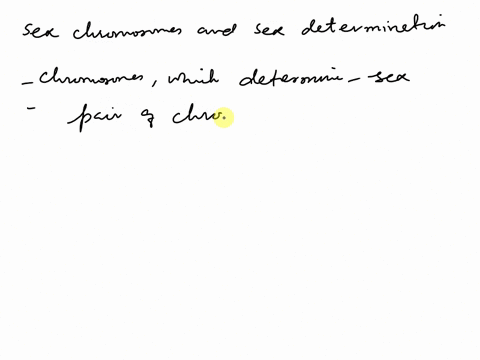 sex chromosomes and sex determination
- chromosomes, which determine - sex
- pair of chro.